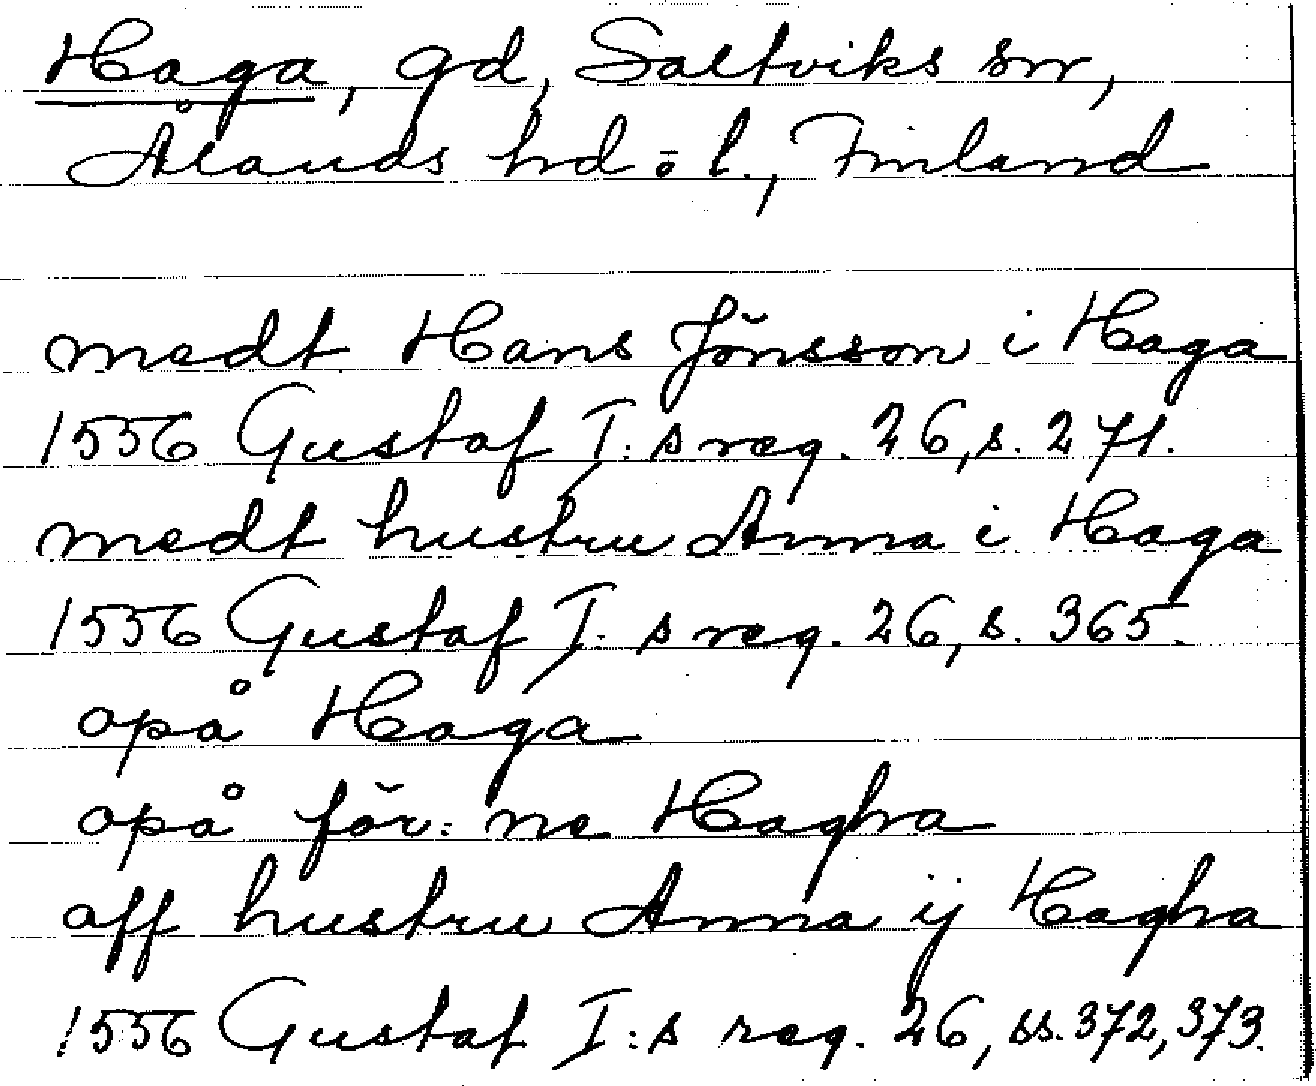 Haga, gd, Saltviks sn,
Ålands hd o. l., Finland
medt Hans Jönsson i Haga
1556 Gustaf I:s reg. 26, s. 271.
medt hustru Anna i Haga
1556 Gustaf I:s reg. 26, s. 365.
opå Haga
opå för:ne Hagha
aff hustru Anna ij Hagha
1556 Gustaf I:s reg. 26, ss. 372, 373.